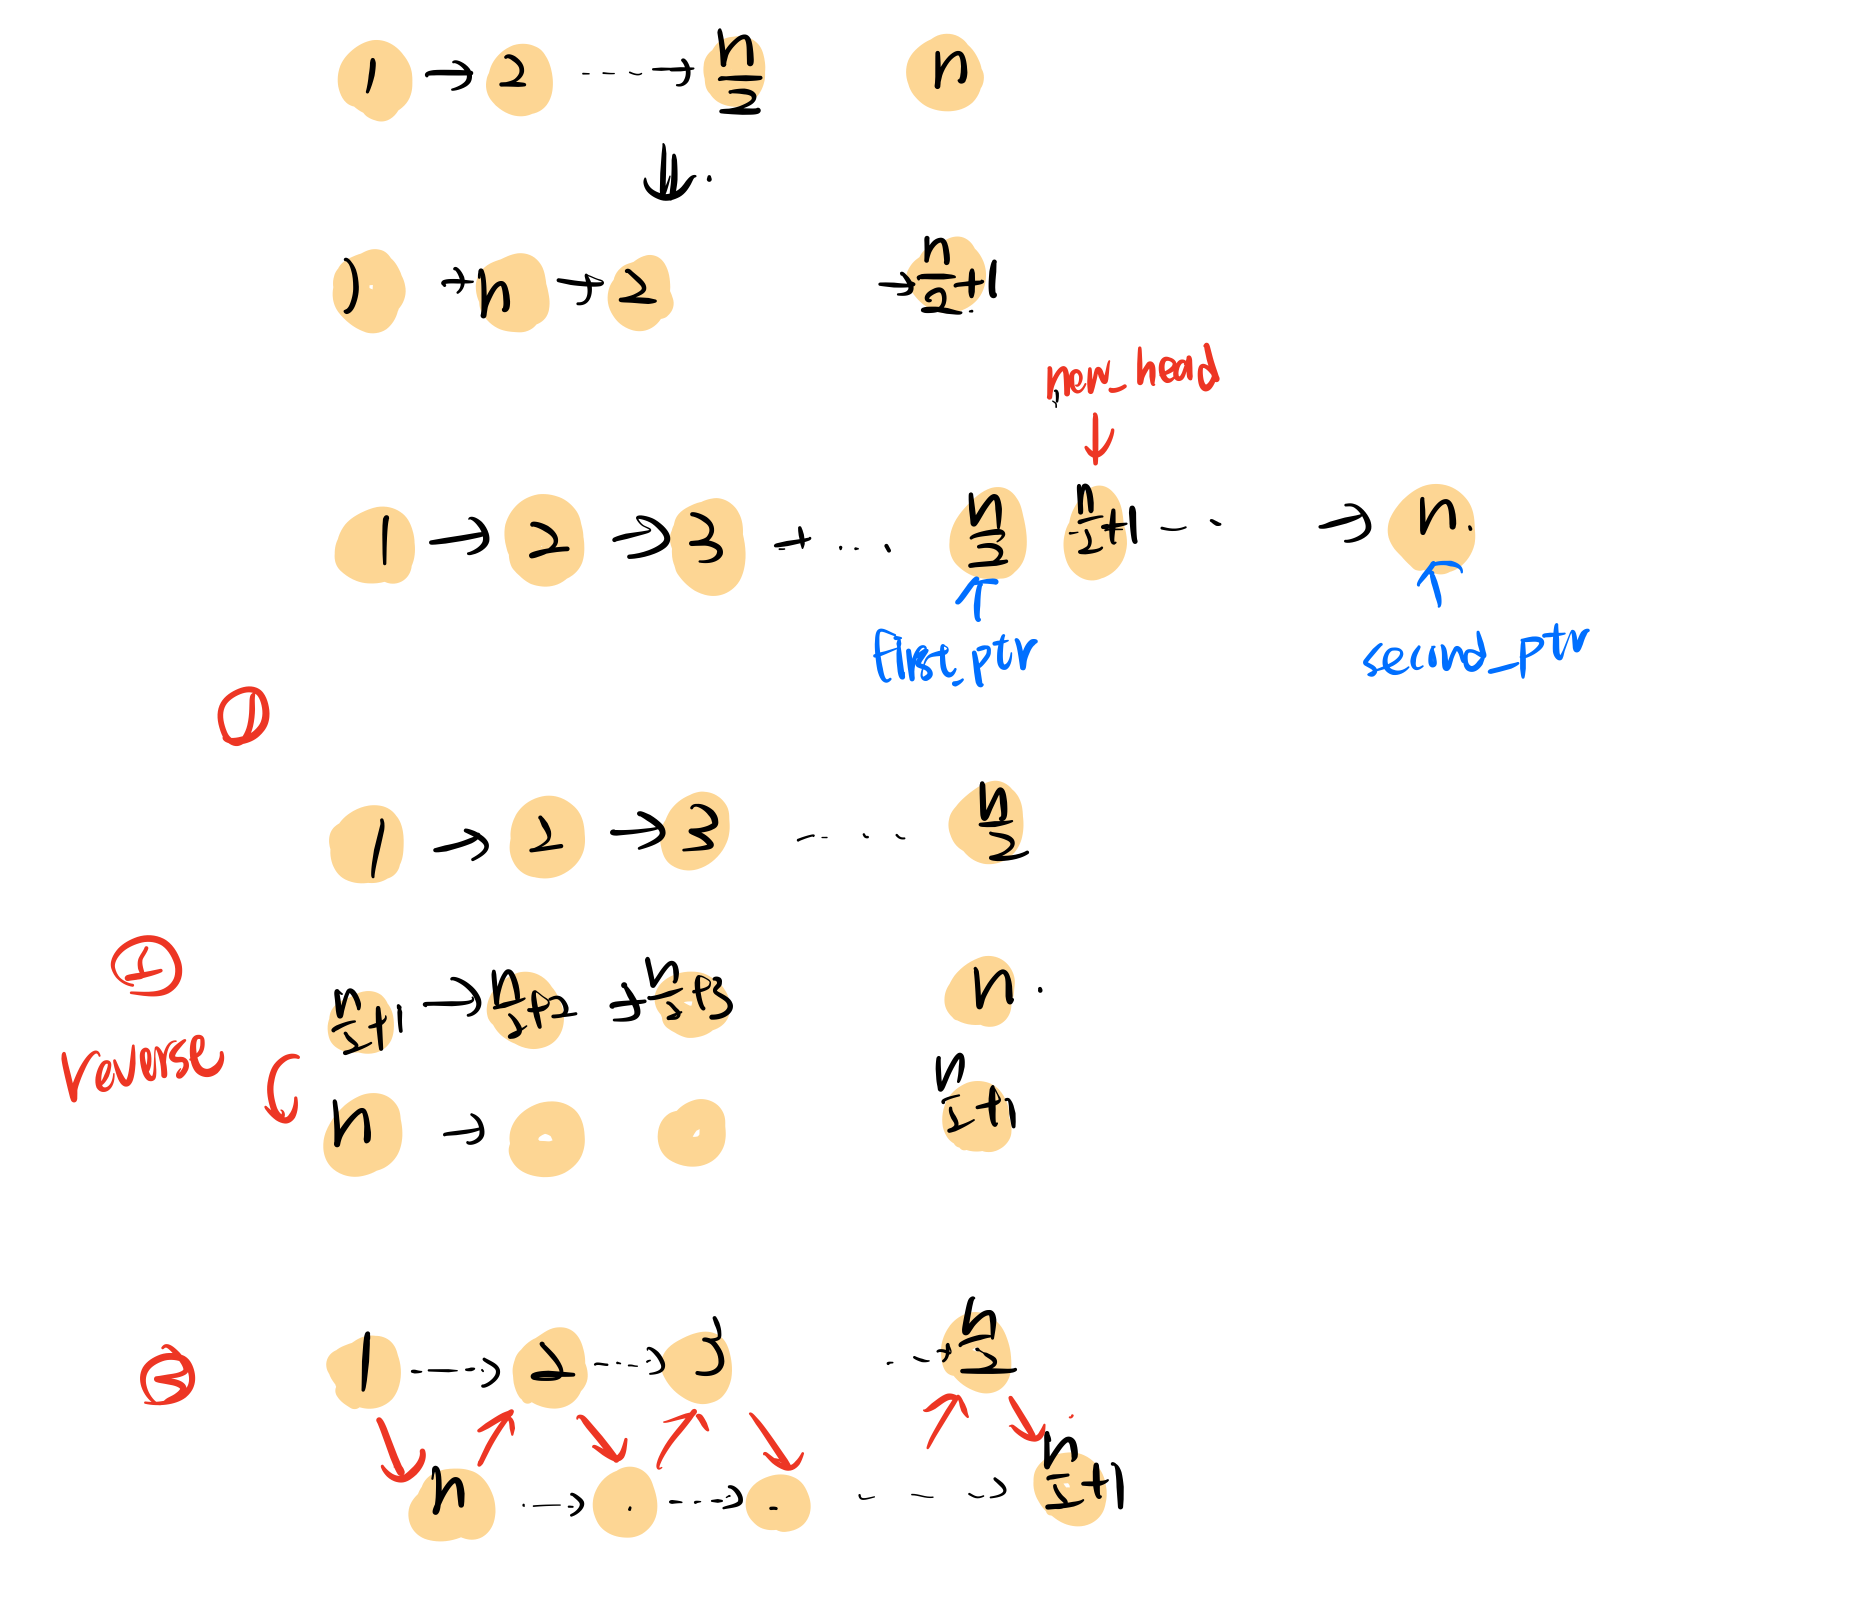 1 → 2 ---→ n/2 n
⇓.
1 → n → 2 → n/2+1
new_head
↓
1 → 2 → 3 → ... n/2 n/2+1 -.. → n.
↑ ↑
first_ptr second_ptr
①
1 → 2 → 3 .... n/2
②
n/2+1 → n/2+2 → n/2+3 n.
reverse
n → . . n/2+1
③
1 ---> 2 ---> 3 --> n/2
n ---> . ---> . ---> n/2+1